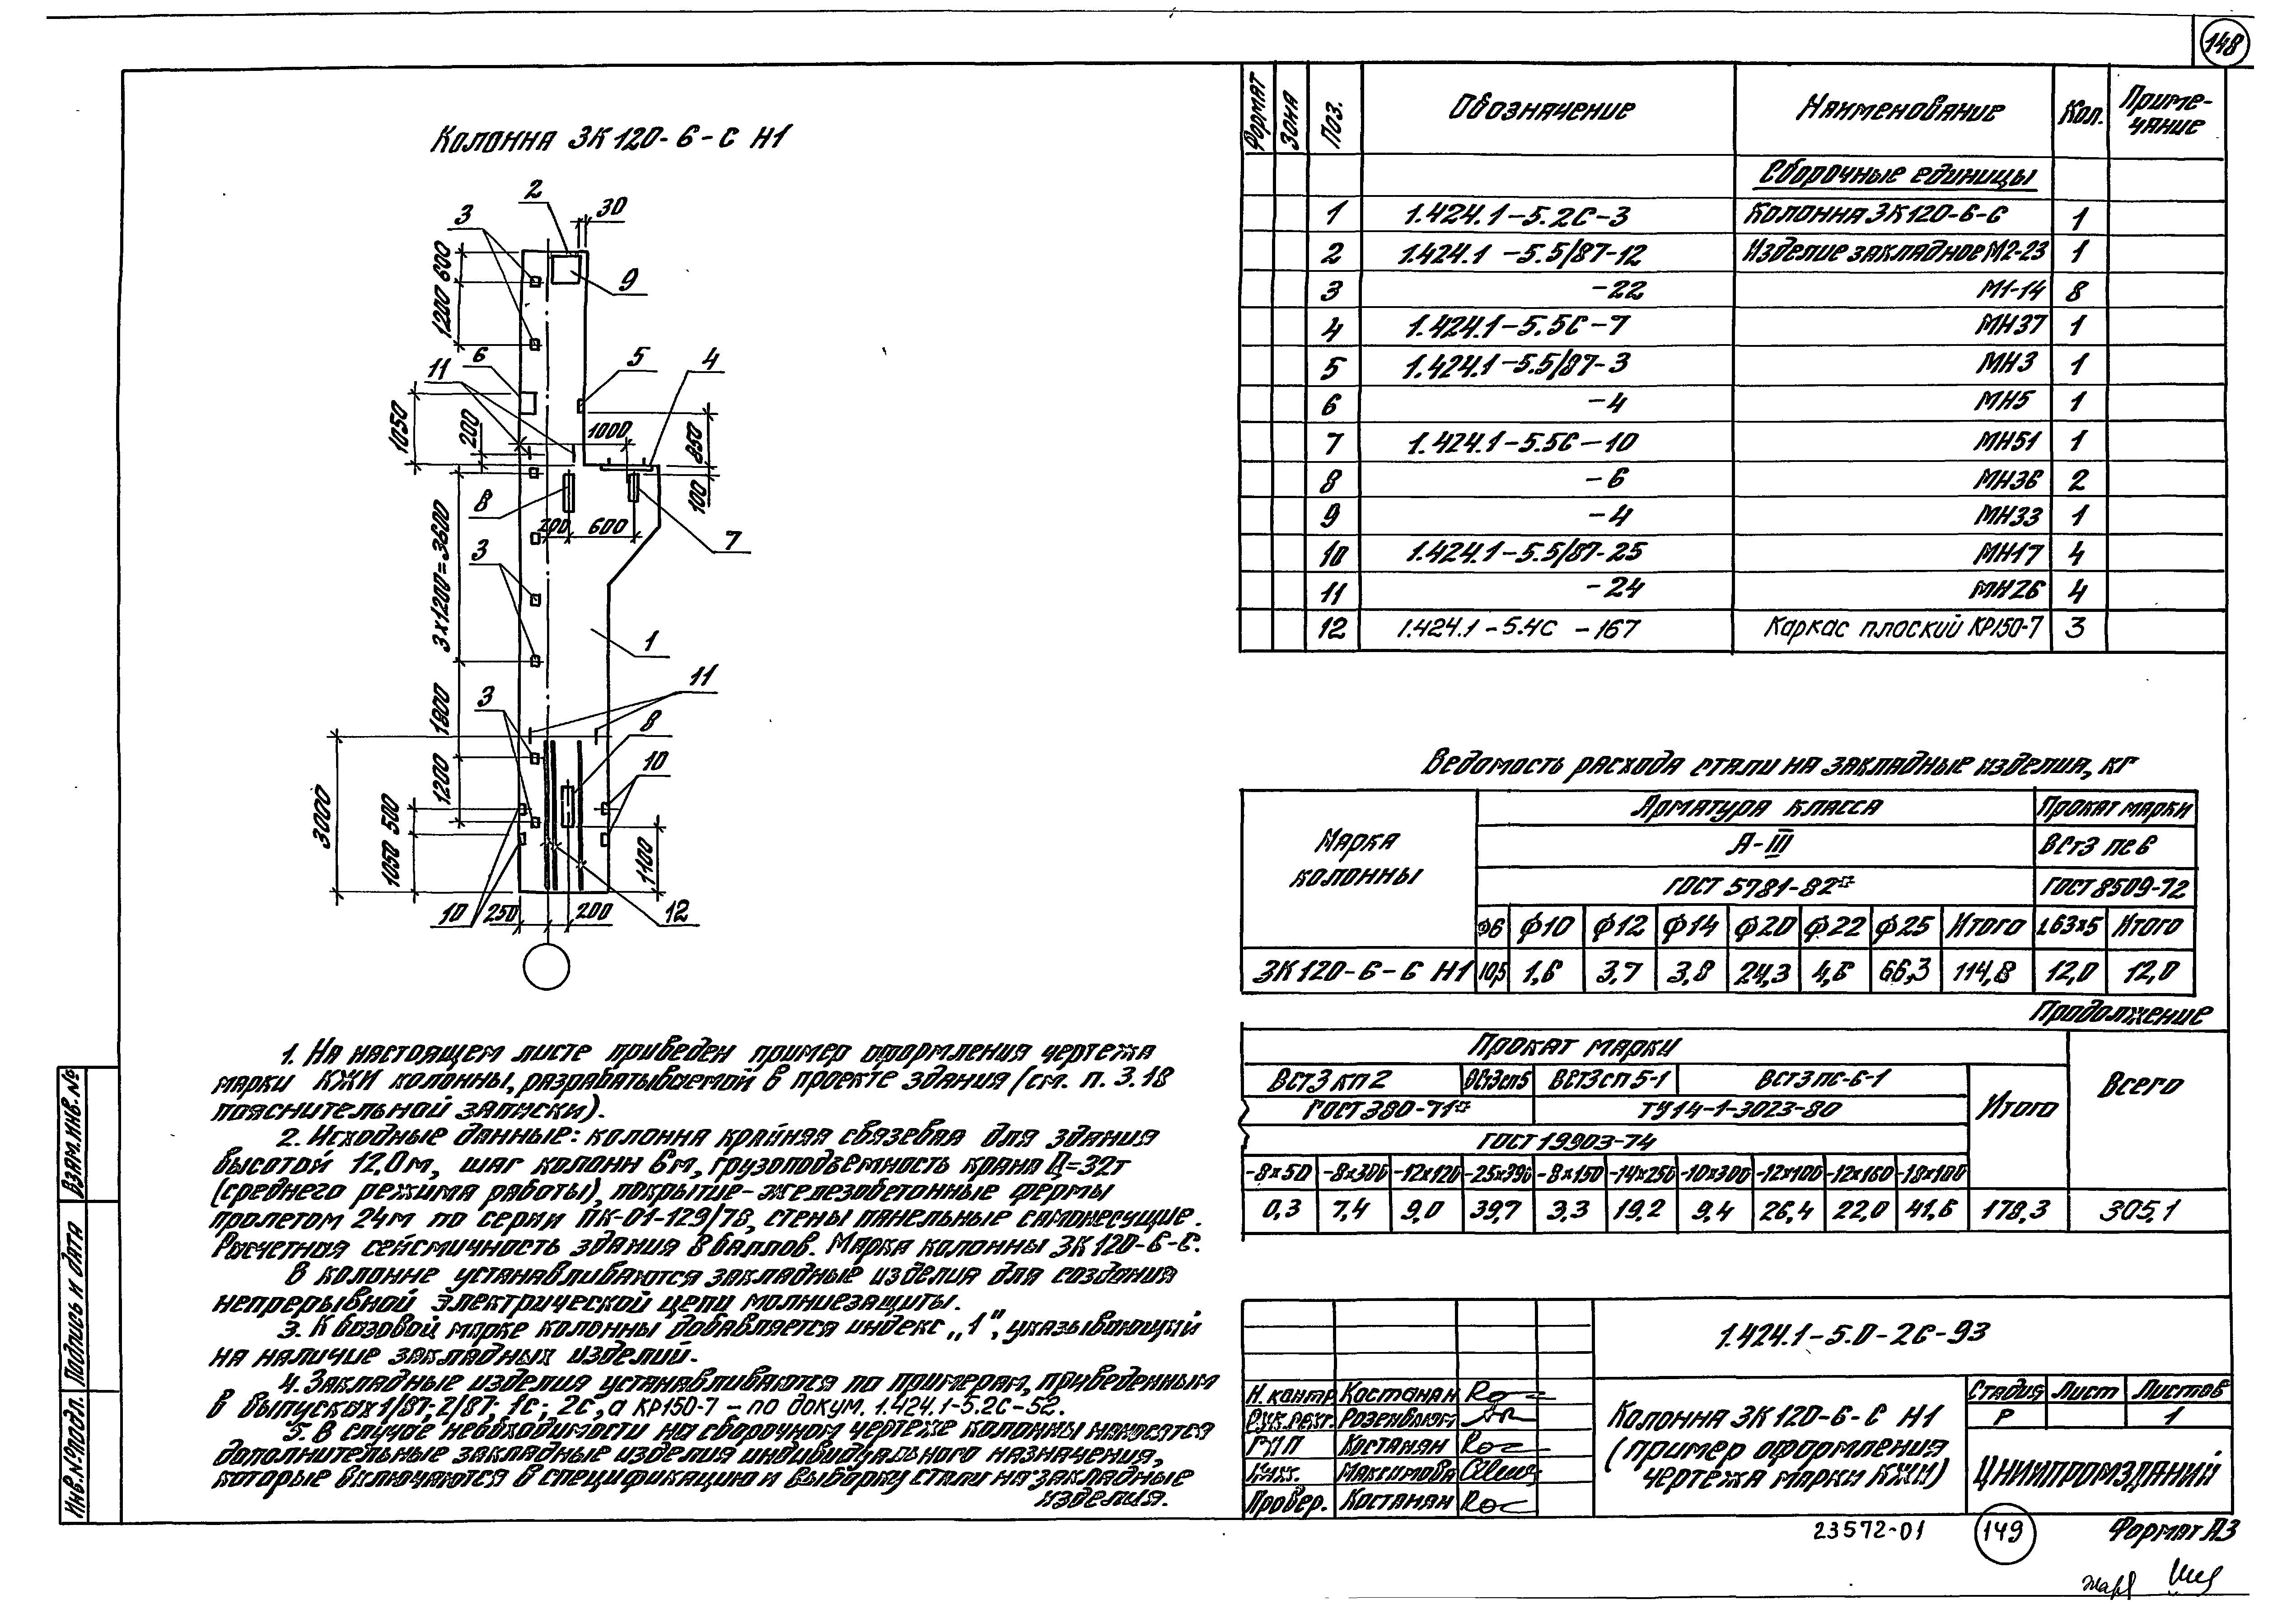 148
Колонна 3К120-6-С Н1
2
30
3
600
9
1200
6
5
4
11
1050
200
1000
850
8
100
200
600
7
3
3х1200=3600
1
11
3
1800
8
10
1200
3000
500
1050
1100
10
250
200
12
Формат
Зона
Поз.
Обозначение
Наименование
Кол.
Приме-
чание
Сборочные единицы
1 1.424.1-5.2С-3 Колонна 3К120-6-С 1
2 1.424.1-5.5/87-12 Изделие закладное М2-23 1
3 -22 М1-14 8
4 1.424.1-5.5С-7 МН37 1
5 1.424.1-5.5/87-3 МН3 1
6 -4 МН5 1
7 1.424.1-5.5С-10 МН51 1
8 -6 МН36 2
9 -4 МН33 1
10 1.424.1-5.5/87-25 МН17 4
11 -24 МН26 4
12 1.424.1-5.4С -167 Каркас плоский КР150-7 3
Ведомость расхода стали на закладные изделия, кг
Марка
колонны
Арматура класса
Прокат марки
А-III
ВСт3 пс 6
ГОСТ 5781-82*
ГОСТ 8509-72
ф6 ф10 ф12 ф14 ф20 ф22 ф25 Итого L63х5 Итого
3К120-6-С Н1 10,5 1,6 3,7 3,8 24,3 4,6 66,3 114,8 12,0 12,0
Продолжение
Прокат марки
Всего
ВСт3 кп 2 ВСт3сп5 ВСт3сп 5-1 ВСт3 пс-6-1
Итого
ГОСТ 380-71* ТУ14-1-3023-80
ГОСТ 19903-74
-8х50 -8х300 -12х120 -25х390 -8х150 -14х250 -10х300 -12х100 -12х160 -18х100
0,3 7,4 9,0 39,7 3,3 19,2 9,4 26,4 22,0 41,6 178,3 305,1
1. На настоящем листе приведен пример оформления чертежа
марки КЖИ колонны, разрабатываемой в проекте здания (см. п. 3.18
пояснительной записки).
2. Исходные данные: колонна крайняя связевая для здания
высотой 12,0м, шаг колонн 6м, грузоподъемность крана Q=32т
(среднего режима работы), покрытие-железобетонные фермы
пролетом 24м по серии ПК-01-129/78, стены панельные самонесущие.
Расчетная сейсмичность здания 8 баллов. Марка колонны 3К120-6-С.
В колонне устанавливаются закладные изделия для создания
непрерывной электрической цепи молниезащиты.
3. К базовой марке колонны добавляется индекс „1", указывающий
на наличие закладных изделий.
4. Закладные изделия устанавливаются по примерам, приведенным
в выпусках 1/87; 2/87; 1С; 2С, а КР150-7 - по докум. 1.424.1-5.2С-52.
5. В случае необходимости на сборочном чертеже колонны наносятся
дополнительные закладные изделия индивидуального назначения,
которые включаются в спецификацию и выборку стали на закладные
изделия.
Взам.инв.№
Подпись и дата
Инв.№подл.
1.424.1-5.0-2С-93
Н.контр. Костанян
Рук.сект. Розенблюм
ГИП Костанян
Инж. Максимова
Провер. Костанян
Колонна 3К120-6-С Н1
(пример оформления
чертежа марки КЖИ)
Стадия Лист Листов
Р 1
ЦНИИПРОМЗДАНИЙ
23572-01
149
Формат А3